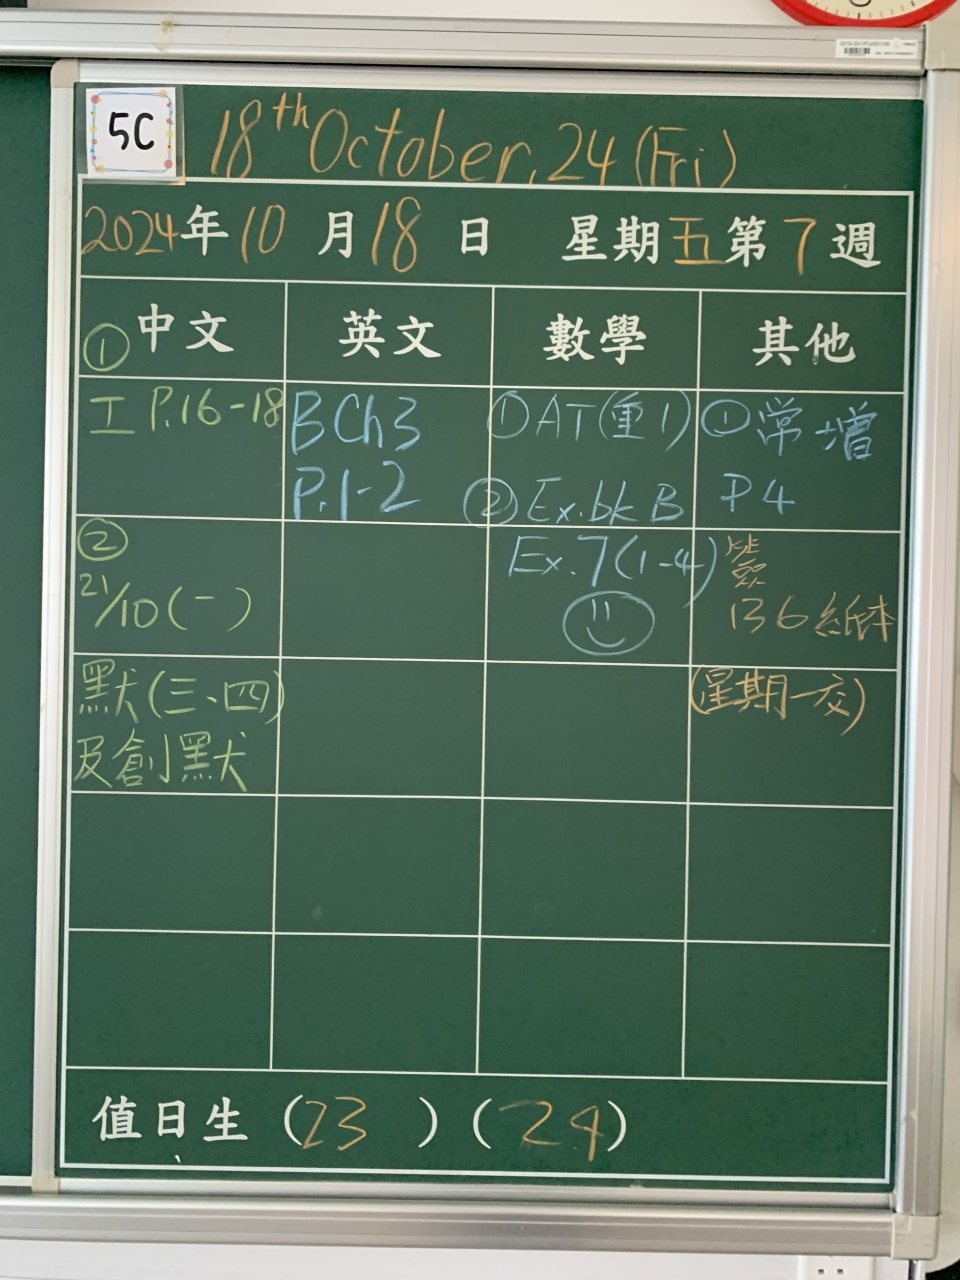 5C
18th October, 24 (Fri)
2024年10月18日 星期五第7週
①中文 英文 數學 其他
工 P.16-18
②
21/10(一)
默(三、四)
及創默
B Ch3
P.1-2
①AT(重1)
②Ex.bk B
Ex.7(1-4)
①常增
P4
簽
136紙本
(星期一交)
值日生 (23) (24)